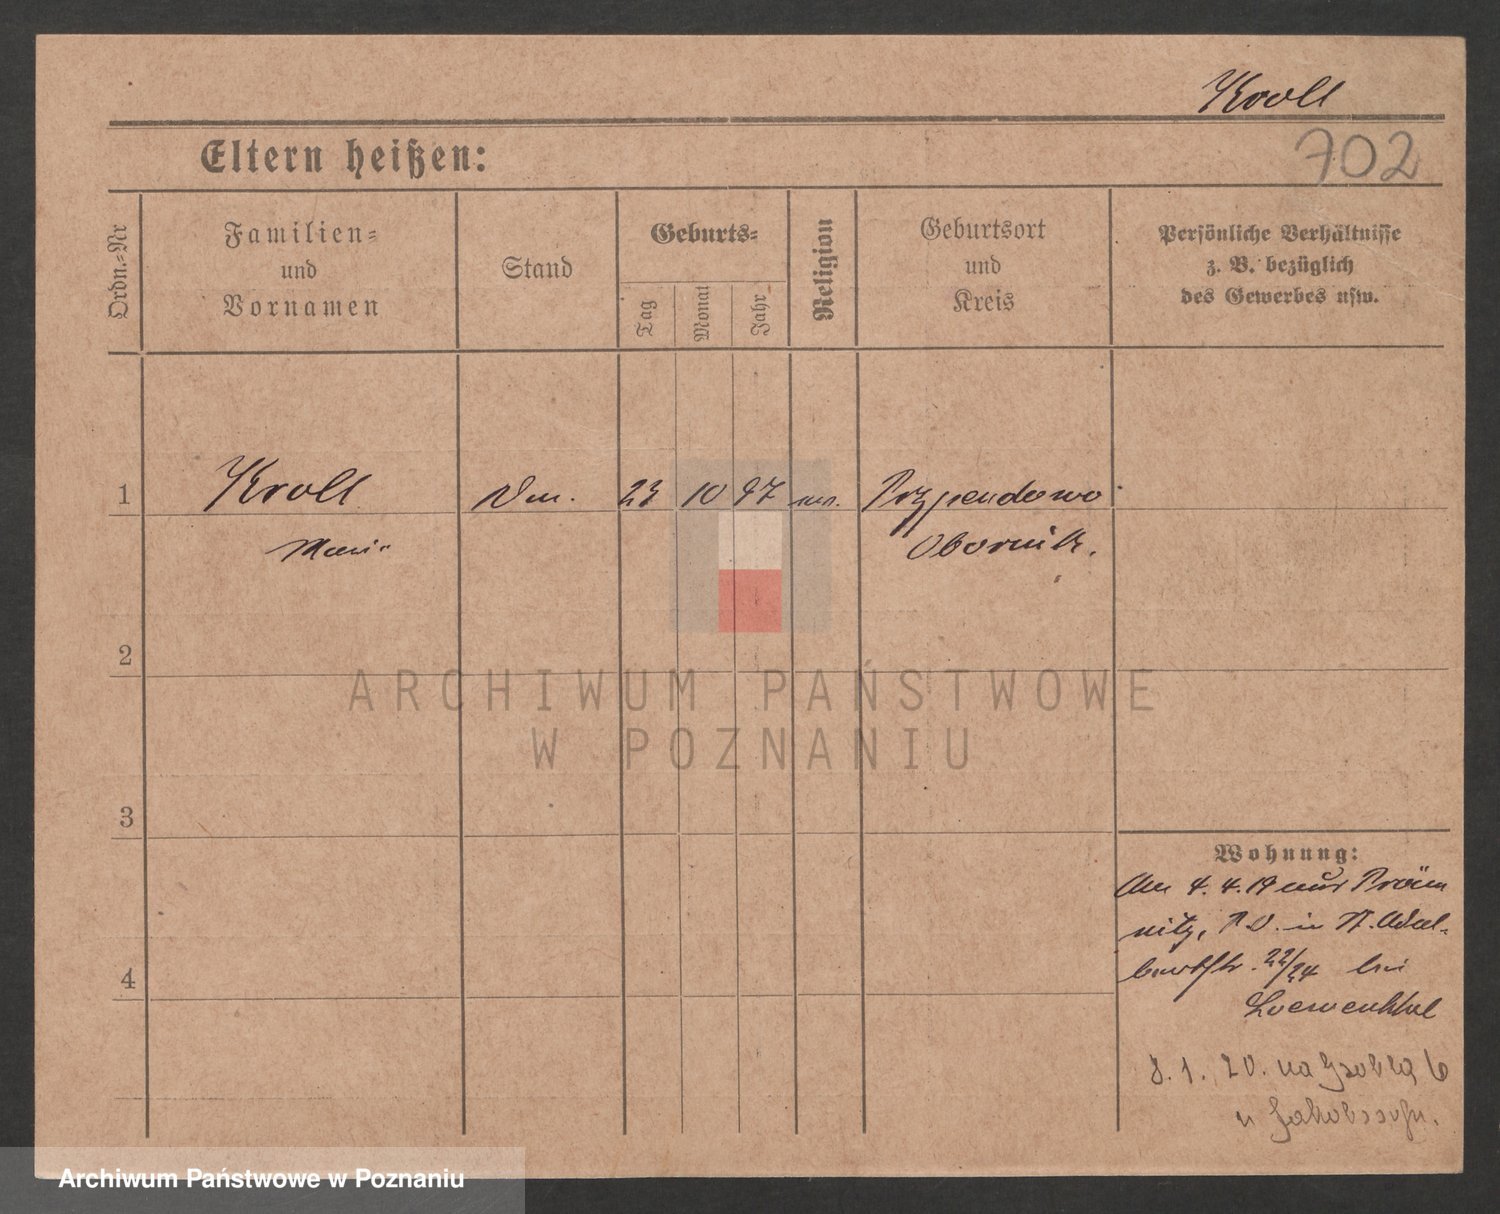 Kroll
Eltern heißen:
702
Ordn.-Nr
Familien-
und
Vornamen
Stand
Geburts-
Tag
Monat
Jahr
Religion
Geburtsort
und
Kreis
Persönliche Verhältnisse
z. B. bezüglich
des Gewerbes usw.
1
Kroll
23
10
97
Przependowo
Marie
Obornik.
2
ARCHIWUM PAŃSTWOWE
W POZNANIU
3
Wohnung:
Am 4.4.19 aus
in St. Adal-
bertstr. 22/24 bei
Loewenthal
4
8.1.20. na
u Jakobssohn.
Archiwum Państwowe w Poznaniu